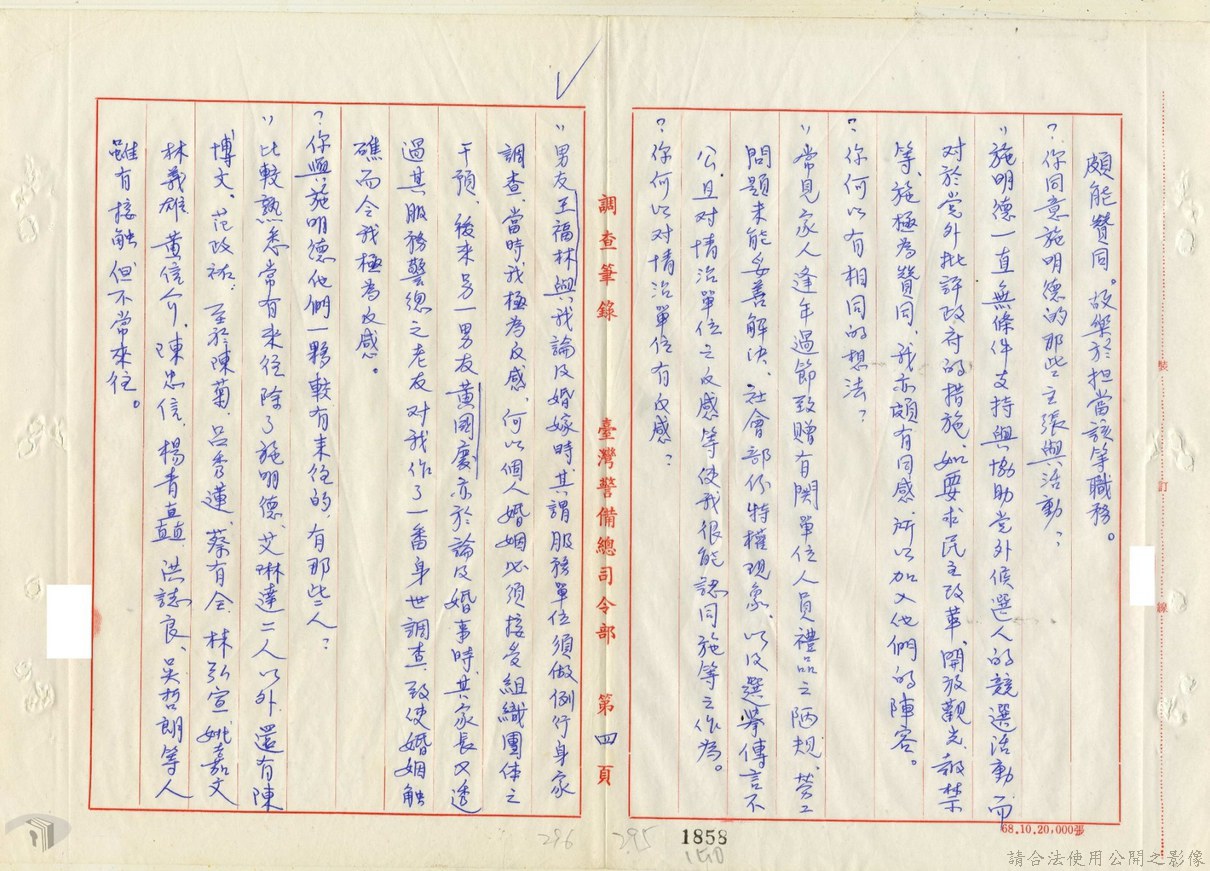 頗能贊同。故樂於担當該等職務。
？你同意施明德的那些主張與活動？
〃施明德一直無條件支持與協助党外候選人的競選活動而
對於党外批評政府的措施，如要求民主改革、開放觀光、設禁
等、施極為贊同，我亦頗有同感，所以加入他們的陣容。
？你何以有相同的想法？
〃常見家人逢年過節致贈有関單位人員禮品之陋規、劳工
問題未能妥善解決、社會部份特權現象、以及選舉傳言不
公，且对情治單位之反感等使我很能認同施等之作為。
？你何以对情治單位有反感？
調查筆錄 臺灣警備總司令部 第四頁
〃男友王福林與我論及婚嫁時，其謂服務單位須做例行身家
調查，當時我極為反感，何以個人婚姻必須接受組織團体之
干預，後來另一男友黃國慶亦於論及婚事時，其家長又透
過其服務警總之老友对我作了一番身世調查，致使婚姻触
礁而令我極為反感。
？你與施明德他們一夥較有來往的，有那些人？
〃比較熟悉常有來往除了施明德、艾琳達二人以外，還有陳
博文、范政祐，至於陳菊、呂秀蓮、蔡有全、林弘宣、姚嘉文
林義雄、黃信介、陳忠信、楊青矗、洪誌良、吳哲朗等人
雖有接触，但不常來往。
裝 訂 線
68.10.20,000張
296
295
1858
請合法使用公開之影像